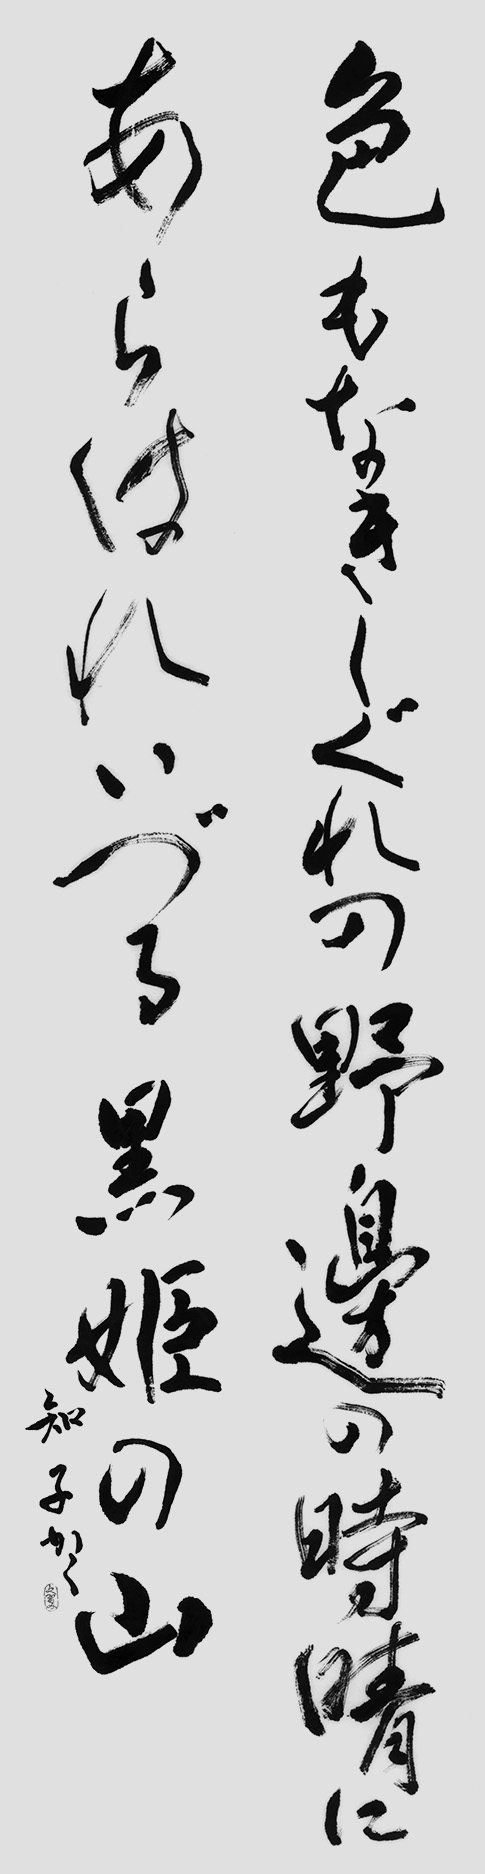 色もなきしぐれの野邊の時晴に
あらはれいづる黒姫の山
知子かく